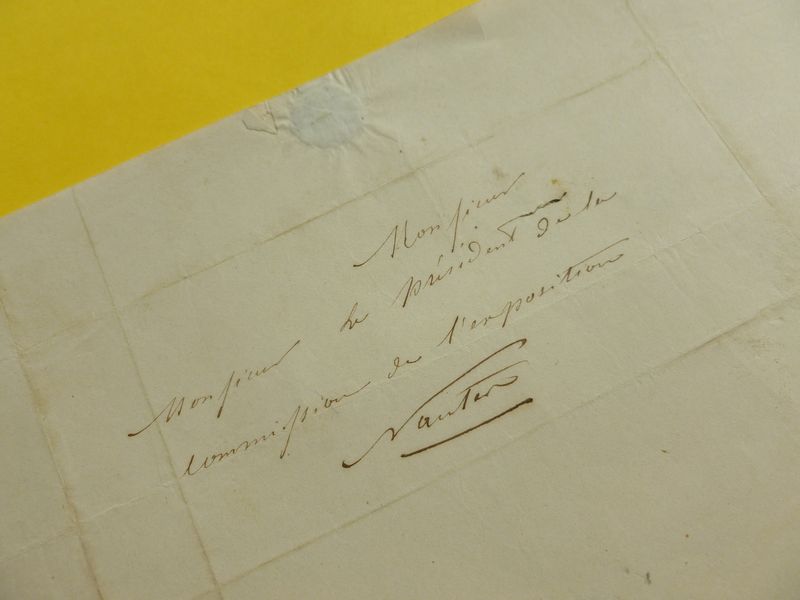 Monsieur
Monsieur le président de la
commission de l'exposition
Nantes